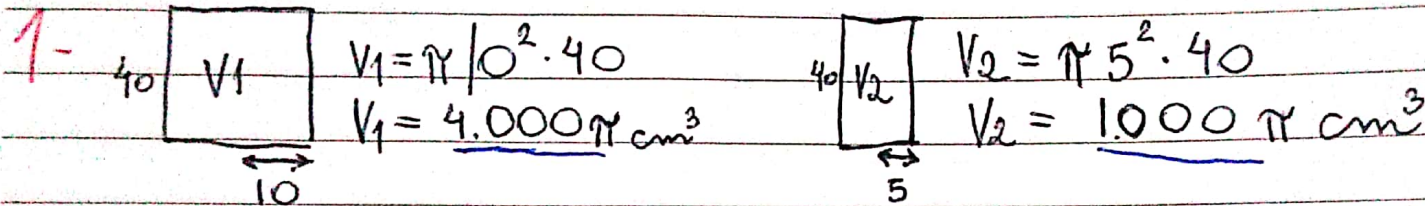 1-
40 V1 V1 = π 10² · 40
V1 = 4.000 π cm³
10
40 V2 V2 = π 5² · 40
V2 = 1.000 π cm³
5